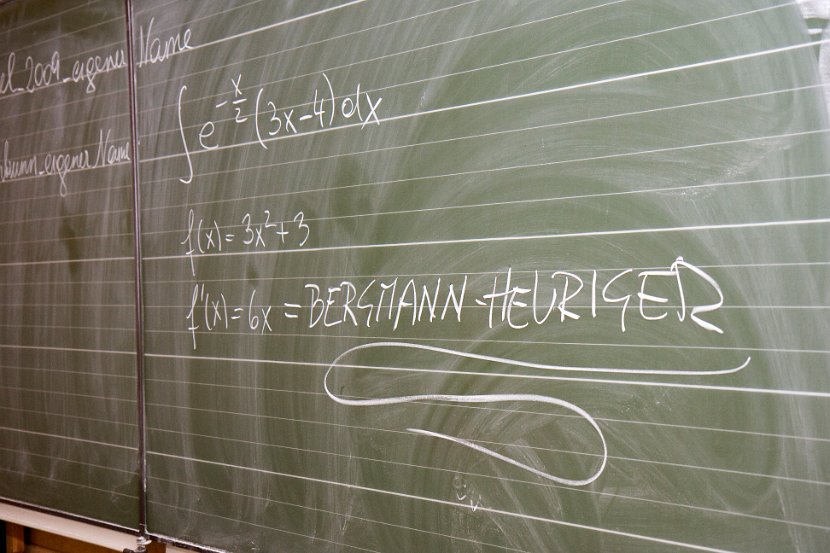 _2009_eigener Name
_eigener Name
∫ e^{-x/2} (3x-4) dx
f(x) = 3x² + 3
f'(x) = 6x = BERGMANN-HEURIGER